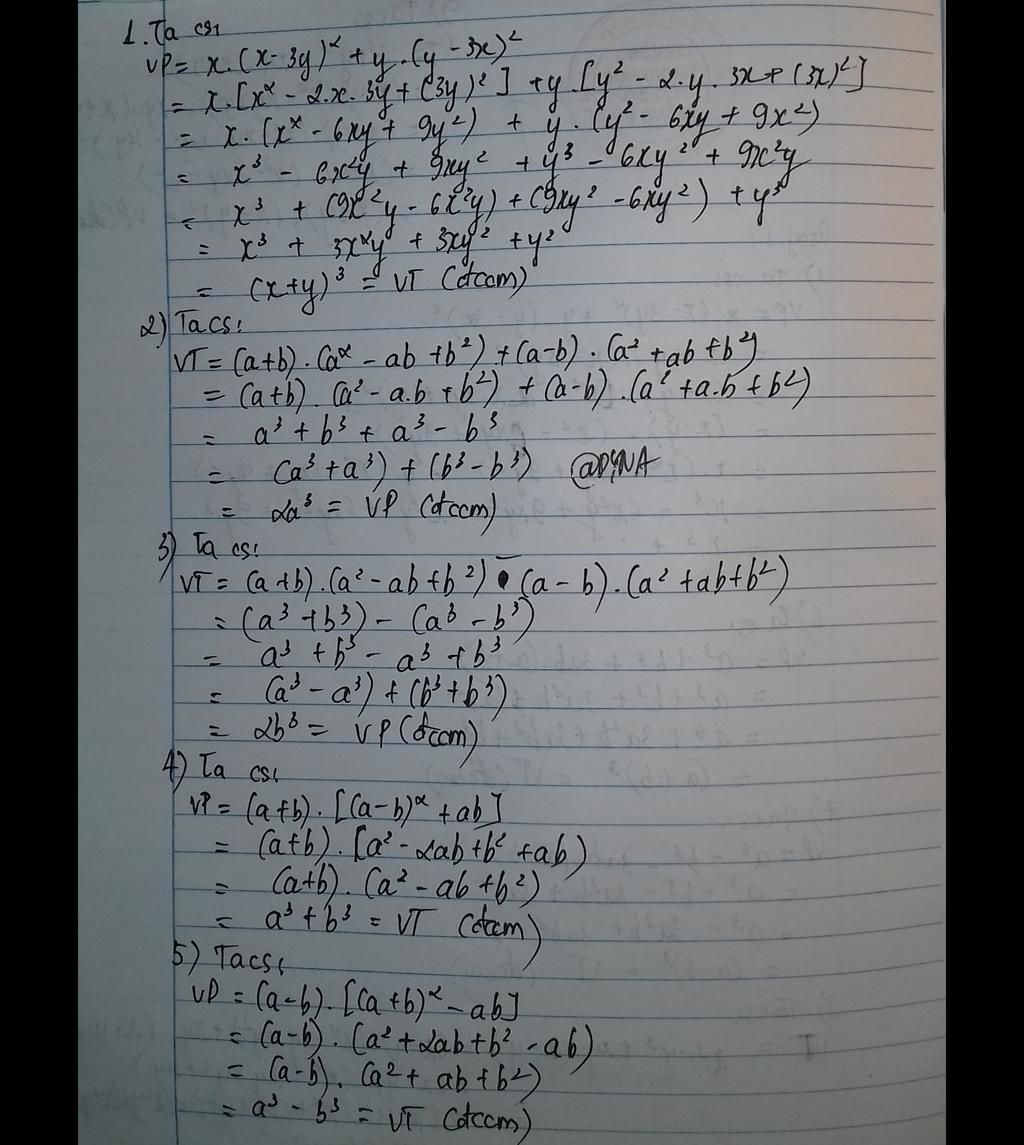 1. Ta có:
VP = x.(x-3y)² + y.(y-3x)²
= x.[x² - 2.x.3y + (3y)²] + y.[y² - 2.y.3x + (3x)²]
= x.(x² - 6xy + 9y²) + y.(y² - 6xy + 9x²)
= x³ - 6x²y + 9xy² + y³ - 6xy² + 9x²y
= x³ + (9x²y - 6x²y) + (9xy² - 6xy²) + y³
= x³ + 3x²y + 3xy² + y²
= (x+y)³ = VT (đccm)
2) Ta có:
VT = (a+b).(a² - ab + b²) + (a-b).(a² + ab + b²)
= (a+b).(a² - a.b + b²) + (a-b).(a² + a.b + b²)
= a³ + b³ + a³ - b³
= (a³ + a³) + (b³ - b³) @DYNA
= 2a³ = VP (đccm)
3) Ta có:
VT = (a+b).(a² - ab + b²) - (a-b).(a² + ab + b²)
= (a³ + b³) - (a³ - b³)
= a³ + b³ - a³ + b³
= (a³ - a³) + (b³ + b³)
= 2b³ = VP (đccm)
4) Ta có:
VP = (a+b).[(a-b)² + ab]
= (a+b).[a² - 2ab + b² + ab)
= (a+b).(a² - ab + b²)
= a³ + b³ = VT (đccm)
5) Ta có:
VP = (a-b).[(a+b)² - ab]
= (a-b).(a² + 2ab + b² - ab)
= (a-b).(a² + ab + b²)
= a³ - b³ = VT (đccm)